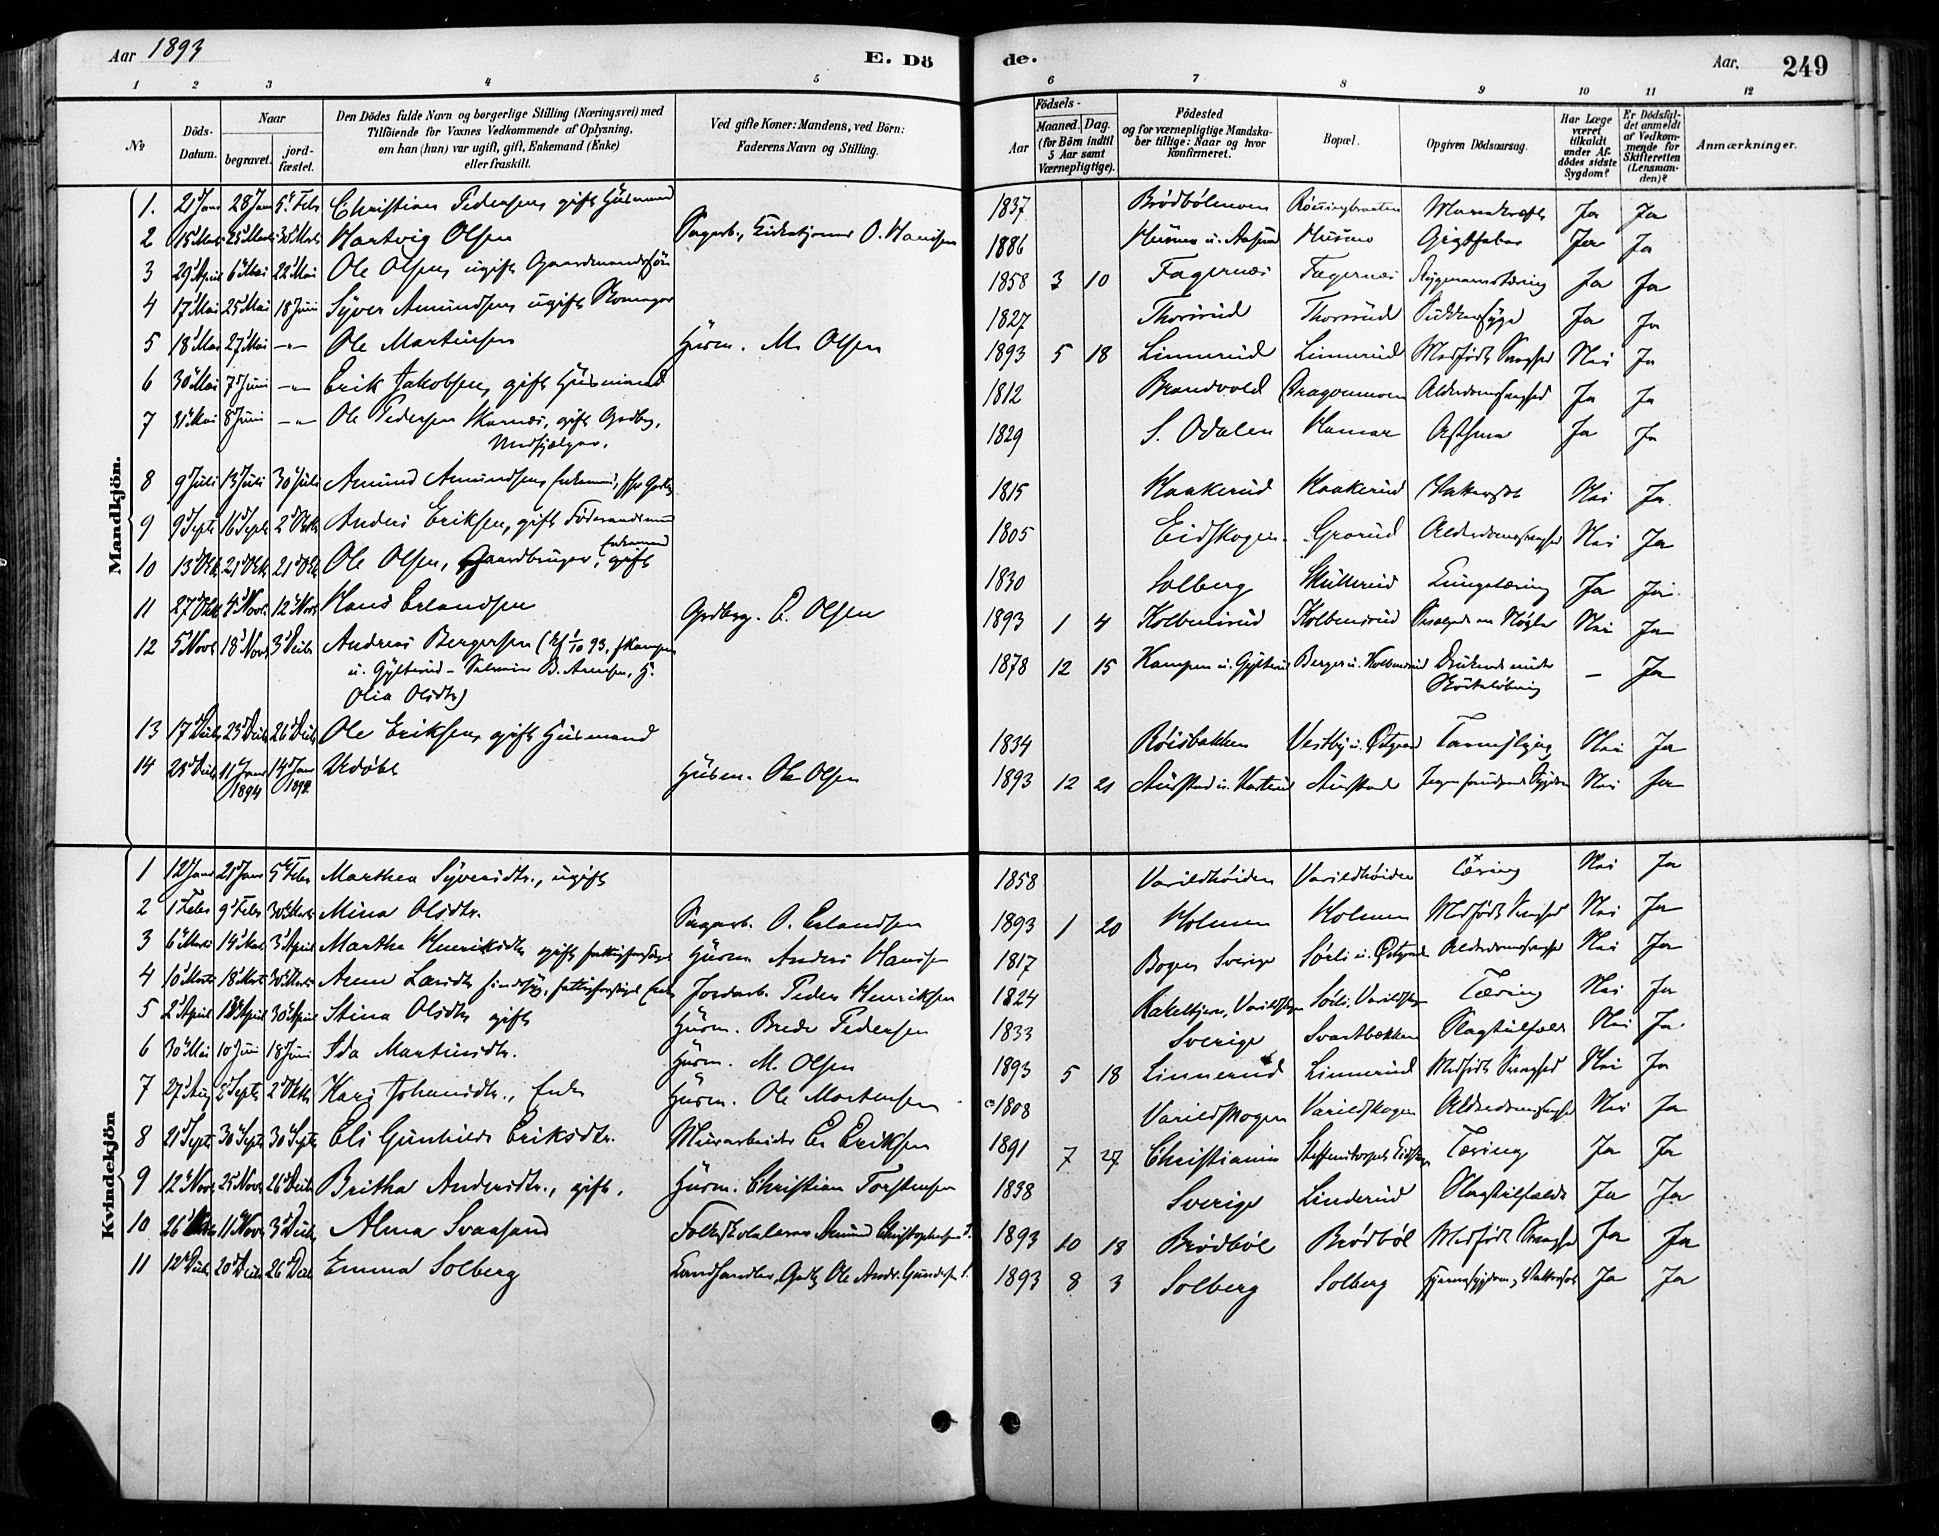 Aar 1893
E. Dö
de.
Aar.
249
1 2 3 4 5 6 7 8 9 10 11 12
№
Döds-
Datum.
Naar
begravet.
jord-
fæstet.
Den Dödes fulde Navn og borgerlige Stilling (Næringsvei) med
Tilföiende for Voxnes Vedkommende af Oplysning,
om han (hun) var ugift, gift, Enkemand (Enke)
eller fraskilt.
Ved gifte Koner: Mandens, ved Börn:
Faderens Navn og Stilling.
Födsels-
Aar
Maaned.
Dag.
(for Börn indtil
5 Aar samt
Værnepligtige).
Födested
og for værnepligtige Mandska-
ber tillige: Naar og hvor
konfirmeret.
Bopæl.
Opgiven Dödsaarsag.
Har Læge
været
tilkaldt
under Af-
dödes sidste
Sygdom?
Er Dödsfal-
det anmeldt
af Vedkom-
mende for
Skifteretten
(Lensman-
den)?
Anmærkninger.
Mandkjön.
1. 21 Janr 28 Jan 5 Febr Christian Pedersen, gift Husmand 1837 Brödbölmoen Ja Ja
2 15 Marts 25 Marts 30 Marts Hartvig Olsen Sagarb., Kirketjener O. Hansen 1886 Husmo Gigtfeber Ja Ja
3 29 April 6 Mai 22 Mai Ole Olsen, ugift Gaardmandssön 1858 3 10 Fagernæs Fagernæs Rygmarvstæring Ja Ja
4 17 Mai 25 Mai 18 Juni Syver Amundsen ugift Skomager 1827 Thorsrud Thorsrud Sukkersyge Ja Ja
5 18 Mai 27 Mai -"- Ole Martinsen Husm. M. Olsen 1893 5 18 Linnerud Linnerud Medfödt Svaghed Nei Ja
6 30 Mai 7 Juni -"- Erik Jakobsen, gift Husmand 1812 Brandvold Alderdomssvaghed Ja Ja
7 31 Mai 8 Juni -"- Ole Pedersen Skarnæs, gift Gdbrg, 1829 S. Odalen Hamar Asthma Ja Ja
8 9 Juli 13 Juli 30 Juli Amund Amundsen 1815 Haakerud Haakerud Vattersot Nei Ja
9 9 Septr 16 Septr 2 Oktr Anders Eriksen, gift Föderaadsmand 1805 Eidskogen Grorud Alderdomssvaghed Nei Ja
10 13 Okt 21 Okt 21 Okt Ole Olsen, Gaardbruger, Enkemand gift 1830 Solberg Skullerud Lungetæring Ja Ja
11 27 Okt 4 Novr 12 Novr Hans Erlandsen Grdbrg. E. Olsen 1893 1 4 Kolbensrud Kolbensrud Nei Ja
12 5 Novr 18 Novr 3 Decbr Andreas Bergersen
u. Gylterud
Olia Olsdtr)
1878 12 15 Kampen u. Gylterud Berger u. Kolbensrud Druknede under
Sköitelöbning
– Ja
13 17 Decbr 23 Decbr 26 Decbr Ole Eriksen, gift Husmand 1834 Röisbakken Nei Ja
14 28 Decbr 11 Janr 1894 14 Janr 1894 Udöbt Husm. Ole Olsen 1893 12 21 Aurstad Aurstad Nei Ja
Kvindekjön
1 12 Janr 21 Janr 5 Febr Marthea Syversdtr., ugift 1858 Varildhöiden Varildhöiden Tæring Nei Ja
2 1 Febr 9 Febr 30 Marts Mina Olsdtr. Sagarb. O. Erlandsen 1893 1 20 Holmen Holmen Medfödt Svaghed Nei Ja
3 6 Marts 14 Mar. 3 April Marthe Henriksdtr gift Husm. Anders Hansen 1817 Bogen Sverige Sörli u. Alderdomssvaghed Nei Ja
4 10 Marts 18 Marts 30 Marts Anne Larsdtr Jordarb. Peder Henriksen 1824 Tæring Nei Ja
5 2 April 13 April 30 April Stina Olsdtr gift Husm. Brede Pedersen 1833 Sverige Svartbækken Slagtilfælde Nei Ja
6 30 Mai 10 Juni 18 Juni Ida Martinsdtr. Husm. M. Olsen 1893 5 18 Linnerud Linnerud Medfödt Svaghed Nei Ja
7 27 Aug 2 Septr 2 Oktr Kari Johansdtr., Enke Husm. Ole Mortensen 1808 Varildskogen Varildskogen Alderdomssvaghed Nei Ja
8 21 Septr 30 Septr 30 Septr Eli Gunhilde Eriksdtr. Murarbeider E. Eriksen 1891 7 27 Christiania Tæring Ja Ja
9 12 Novr 25 Novr 26 Decbr Britha Andersdtr., gift. Husm. Christian Torstensen 1838 Sverige Linderud Slagtilfælde Ja Ja
10 26 11 Novr 3 Decbr Alma Svaasand Folkskolelærer Amund Christophersen S. 1893 10 18 Brödböl Brödböl Medfödt Svaghed Ja Ja
11 12 Decbr 20 Decbr 26 Decbr Emma Solberg Landhandler, Gdbr Ole Andr. Gundersen S. 1893 8 3 Solberg Solberg Hjernesygdom, Vattersot Ja Ja